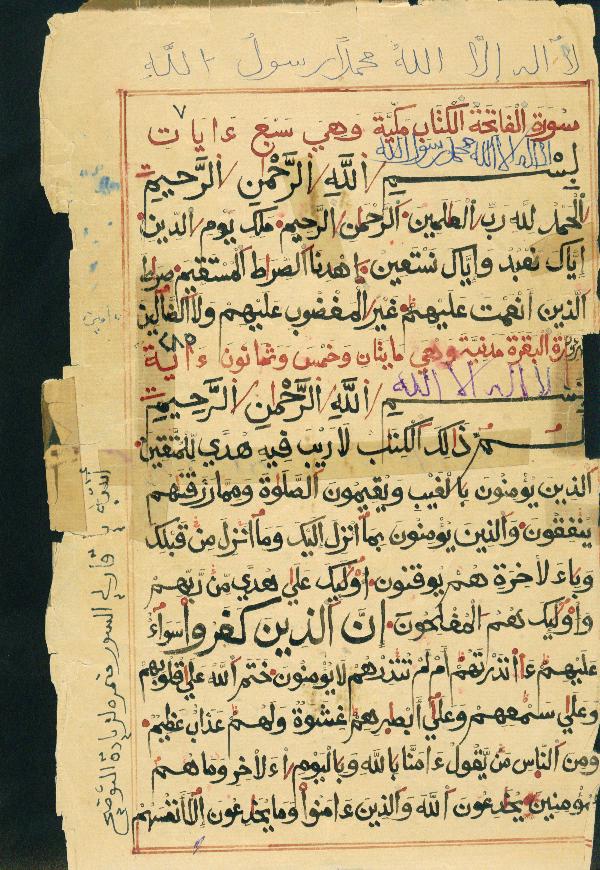 لا اله إلا الله محمد رسول الله
٧
سورة الفاتحة الكتاب مكية وهي سبع ءايات
لا اله الا الله محمد رسول الله
بسم الله الرحمن الرحيم
الحمد لله رب العلمين الرحمن الرحيم ملك يوم الدين
إياك نعبد وإياك نستعين اهدنا الصراط المستقيم صراط
الذين أنعمت عليهم غير المغضوب عليهم ولا الضالين
سورة البقرة مدنية وهي مايتان وخمس وثمانون ءاية
٢٨٥
لا اله الا الله
بسم الله الرحمن الرحيم
ذالك الكتاب لا ريب فيه هدى للمتقين
الذين يؤمنون بالغيب ويقيمون الصلوة ومما رزقنهم
ينفقون والذين يؤمنون بما أنزل إليك وما أنزل من قبلك
وباءلاخرة هم يوقنون أوليك علي هدي من ربهم
وأوليك هم المفلحون إن الذين كفروا سواء
عليهم ءاأنذرتهم أم لم تنذرهم لا يؤمنون ختم الله علي قلوبهم
وعلي سمعهم وعلي أبصرهم غشوة ولهم عذاب عظيم
ومن الناس من يقول ءامنا بالله وباليوم اءلاخر وما هم
بمؤمنين يخدعون الله والذين ءامنوا وما يخدعون إلا أنفسهم